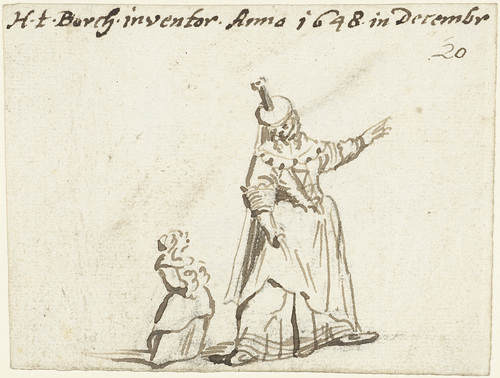 H·t·Borch·inventor·Anno 1648·in Decembr
20